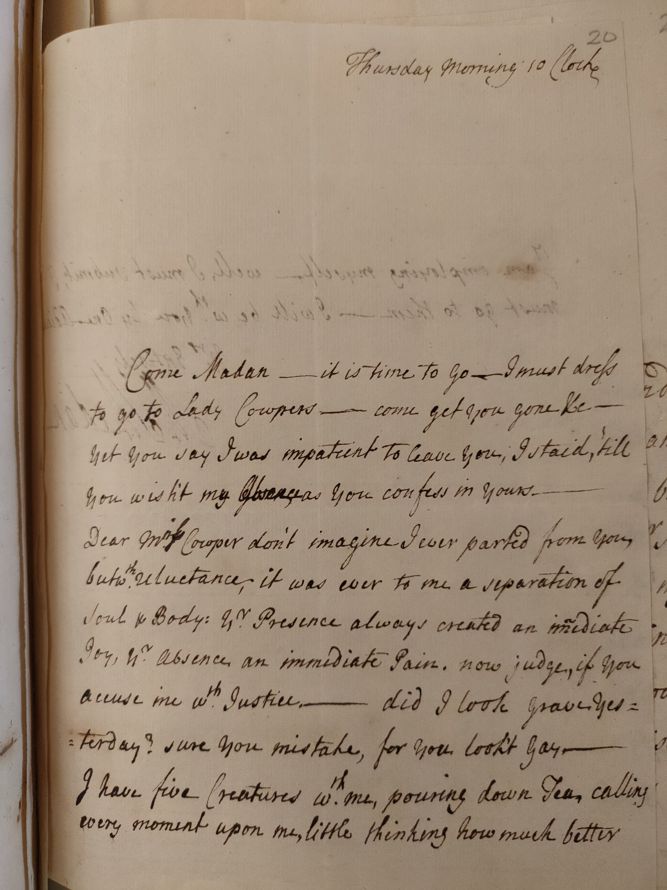 20
Thursday Morning 10 Clock
Come Madan — it is time to go — I must dress
to go to Lady Cowpers — come get you gone &c —
yet you say I was impatient to leave you, I staid, 'till
you wish't my Absence as you confess in yours. —
Dear Mrs Cowper don't imagine I ever parted from you,
but wth. reluctance, it was ever to me a separation of
Soul & Body: yr. Presence always created an im̄ediate
Joy, yr. Absence an immediate Pain. now judge, if you
accuse me wth. Justice. — did I look grave Yes=
=terday? sure you mistake, for you look't Gay —
I have five Creatures wth. me, pouring down Tea, calling
every moment upon me, little thinking how much better